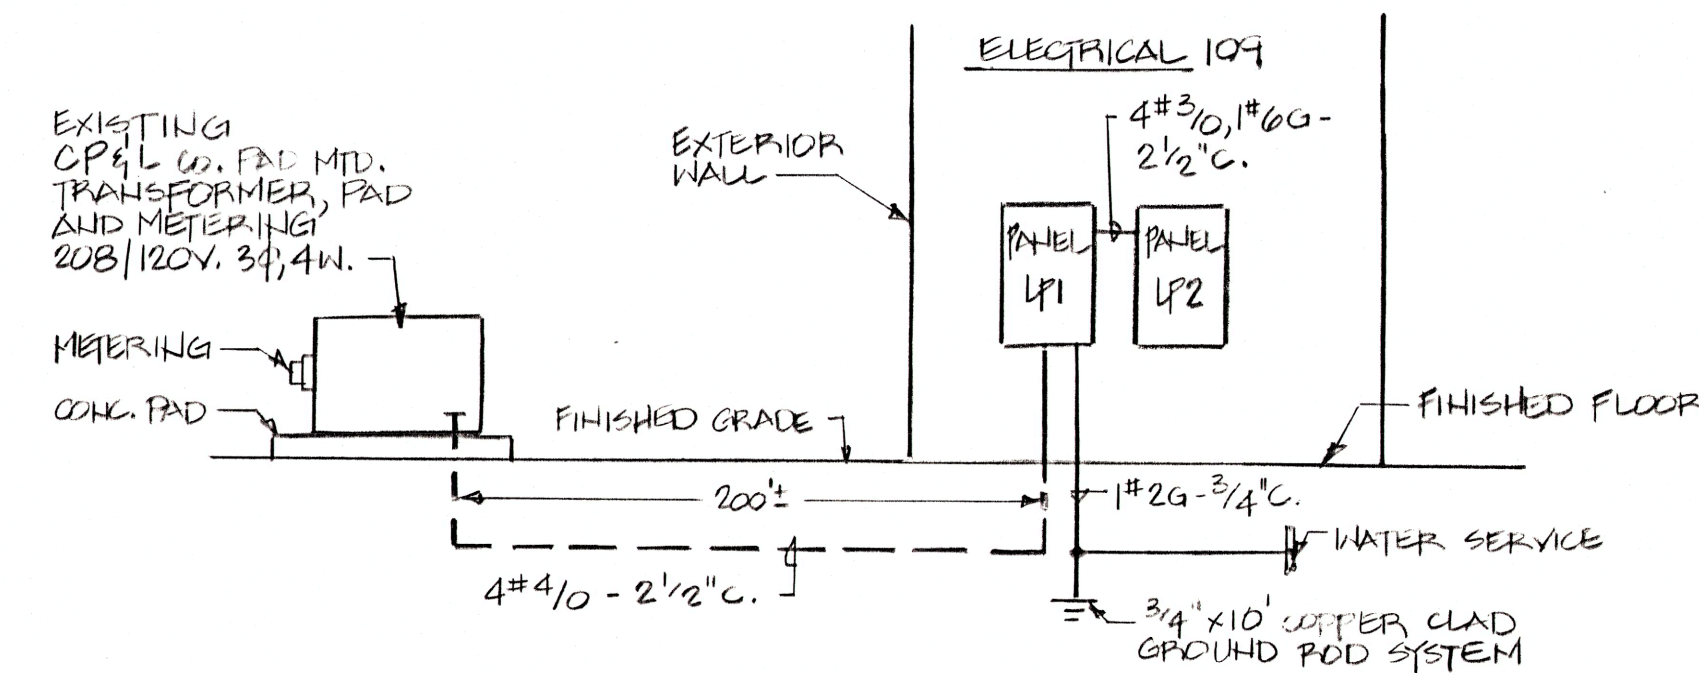 ELECTRICAL 109
4#3/0, 1#6G-
2 1/2"C.
EXISTING
CP&L CO. PAD MTD.
TRANSFORMER, PAD
AND METERING
208/120V. 3φ, 4W.
EXTERIOR
WALL
PANEL
LP1
PANEL
LP2
METERING
CONC. PAD
FINISHED GRADE
FINISHED FLOOR
200'±
1#2G-3/4"C.
WATER SERVICE
4#4/0 - 2 1/2"C.
3/4"x10' COPPER CLAD
GROUND ROD SYSTEM